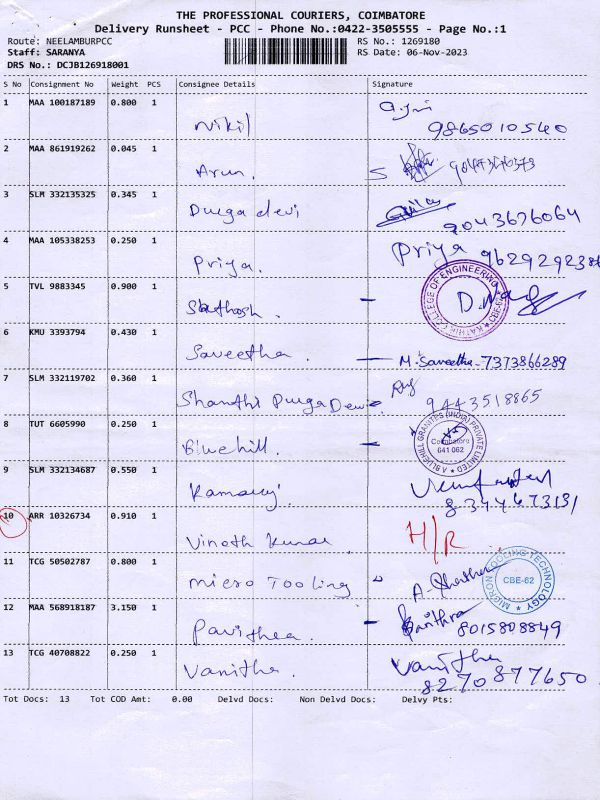 THE PROFESSIONAL COURIERS, COIMBATORE
Delivery Runsheet - PCC - Phone No.:0422-3505555 - Page No.:1
Route: NEELAMBURPCC RS No.: 1269180
Staff: SARANYA RS Date: 06-Nov-2023
DRS No.: DCJB126918001
S No Consignment No Weight PCS Consignee Details Signature
1 MAA 100187189 0.800 1
Nikil 9865010540
2 MAA 861919262 0.045 1
Arun.
3 SLM 332135325 0.345 1
Durga devi 9043676064
4 MAA 105338253 0.250 1 Priya
Priya.
5 TVL 9883345 0.900 1
COLLEGE OF ENGINEERING CBE-62
6 KMU 3393794 0.430 1
Saveetha. M. Saveetha - 7373866289
7 SLM 332119702 0.360 1
Shanthi Durga Devi 9443518865
8 TUT 6605990 0.250 1
Bluehill. BLUEHILL GRANITES (INDIA) PRIVATE LIMITED Coimbatore 641 062
9 SLM 332134687 0.550 1
10 ARR 10326734 0.910 1 H/R
Vinoth Kumar
11 TCG 50502787 0.800 1
Micro Tooling MICRON TOOLING TECHNOLOGY CBE-62
12 MAA 568918187 3.150 1
Pavithra. 8015808849
13 TCG 40708822 0.250 1 Vanitha
Vanitha 8270877650
Tot Docs: 13 Tot COD Amt: 0.00 Delvd Docs: Non Delvd Docs: Delvy Pts: